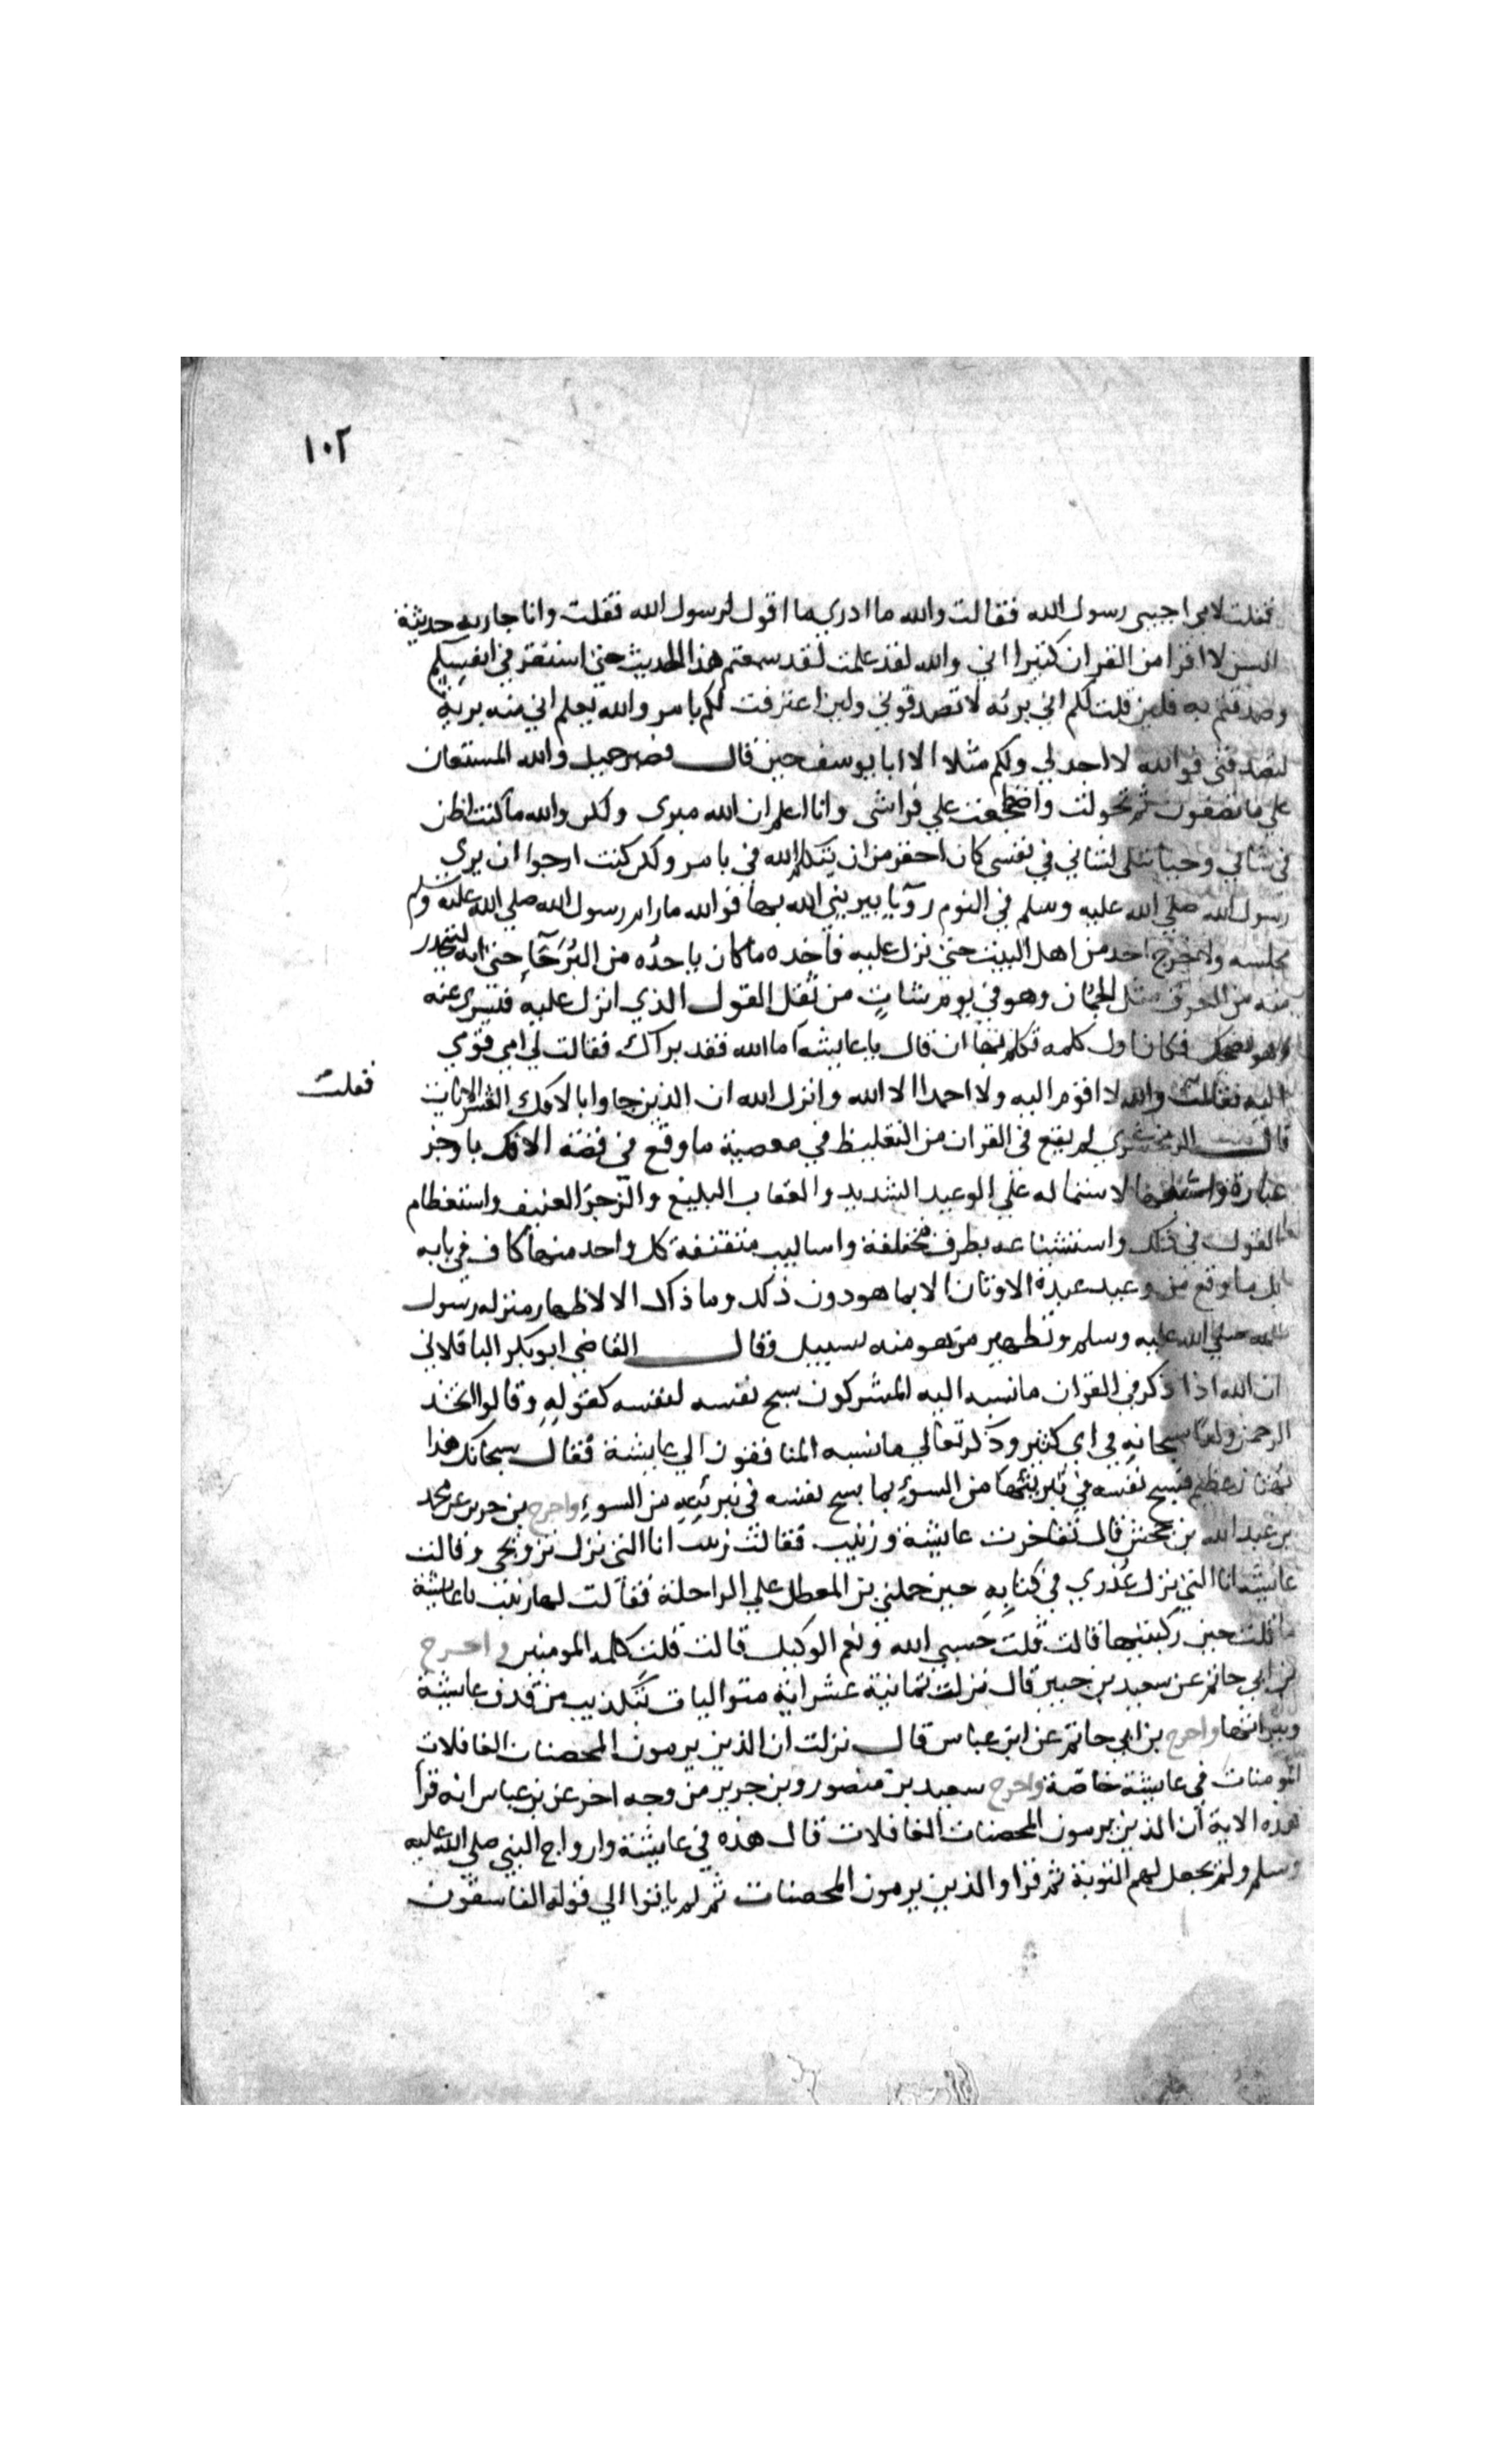 ١٠٢
فقلت لامي اجيبى رسول الله فقالت والله ما ادري ما اقول لرسول الله فقلت وانا جاريه حديثة
السن لا اقرا من القران كثيرا اني والله لقد علمت لقد سمعتم هذا الحديث حتى استقر في انفسكم
وصدقتم به فلين قلت لكم اني بريه لا تصدقوني ولين اعترفت لكم بامر والله يعلم اني منه برية
لتصدقني فوالله لا اجد لي ولكم مثلا الا ابا يوسف حين قال فصبر جميل والله المستعان
علي ما تصفون ثم تحولت واضطجعت علي فراشى وانا اعلم ان الله مبرى ولكن والله ما كنت اظن
لشاني في نفسى كان احقر من ان يتكلم الله في بامر ولكن كنت ارجوا ان يري
رسول الله صلي الله عليه وسلم في النوم رويا يبريني الله بها فوالله ما رام رسول الله صلي الله عليه وسلم
مجلسه ولا خرج احد من اهل البيت حتى نزل عليه فاخده ما كان ياخذه من البرحآء حتى انه ليتحدر
منه من العرق مثل الجمان وهو في يوم شاتٍ من ثقل القول الذي انزل عليه فسرى عنه
وهو يضحك فكان اول كلمه تكلم بها ان قال يا عايشه اما الله فقد براك فقالت لي امي قومي
اليه فقلت والله لا اقوم اليه ولا احمد الا الله وانزل الله ان الذين جاوا بالافك العشر الايات
فقلت
قال الزمخشري لم يقع في القران من التغليظ في معصية ما وقع في قصة الافك باوجز
عبارة واشبعها لاشتماله علي الوعيد الشديد والعقاب البليغ والزجر العنيف واستعظام
القول في ذلك واستشناعه بطرق مختلفة واساليب متقنة كل واحد منها كاف في بابه
بل ما وقع من وعيد عبدة الاوثان الا بما هو دون ذلك وما ذاك الا لاظهار منزله رسول
الله صلي الله عليه وسلم وتطهير من هو منه بسبيل وقال القاضي ابو بكر الباقلاني
ان الله اذا ذكر في القران ما نسبه اليه المشركون سبح نفسه لنفسه كقولهِ وقالوا اتخذ
الرحمن ولدا سبحانه في اي كثير وذكر تعالي ما نسبه المنافقون الي عايشة فقال سبحانك هذا
بهتان عظيم فسبح نفسه في تبريتها من السوءِ بما سبح نفسه في تبريئه من السوءِ واخرج بن جرير عن محمد
بن عبد الله بن جحش قال تفاخرت عايشة وزينب فقالت زينب انا التي نزل تزويجى وقالت
عايشه انا التي نزل عذري في كتابهِ حين حملني بن المعطل علي الراحلة فقالت لها زينب يا عايشة
ما قلت حين ركبتيها قالت قلت حسبي الله ونعم الوكيل قالت قلت كلمه المومنين واخرج
بن ابي حاتم عن سعيد بن جبير قال نزلت ثمانية عشر اية متواليات بتكذيب من قدف عايشة
وبراتها واخرج بن ابي حاتم عن ابن عباس قال نزلت ان الذين يرمون المحصنات الغافلات
المومنات في عايشة خاصة واخرج سعيد بن منصور وبن جرير من وجه اخر عن بن عباس انه قرا
هده الاية ان الذين يرمون المحصنات الغافلات قال هذه في عايشة وازواج النبي صلي الله عليه
وسلم ولم يجعل لهم التوبة ثم قرا والذين يرمون المحصنات ثم لم ياتوا الي قوله الفاسقون